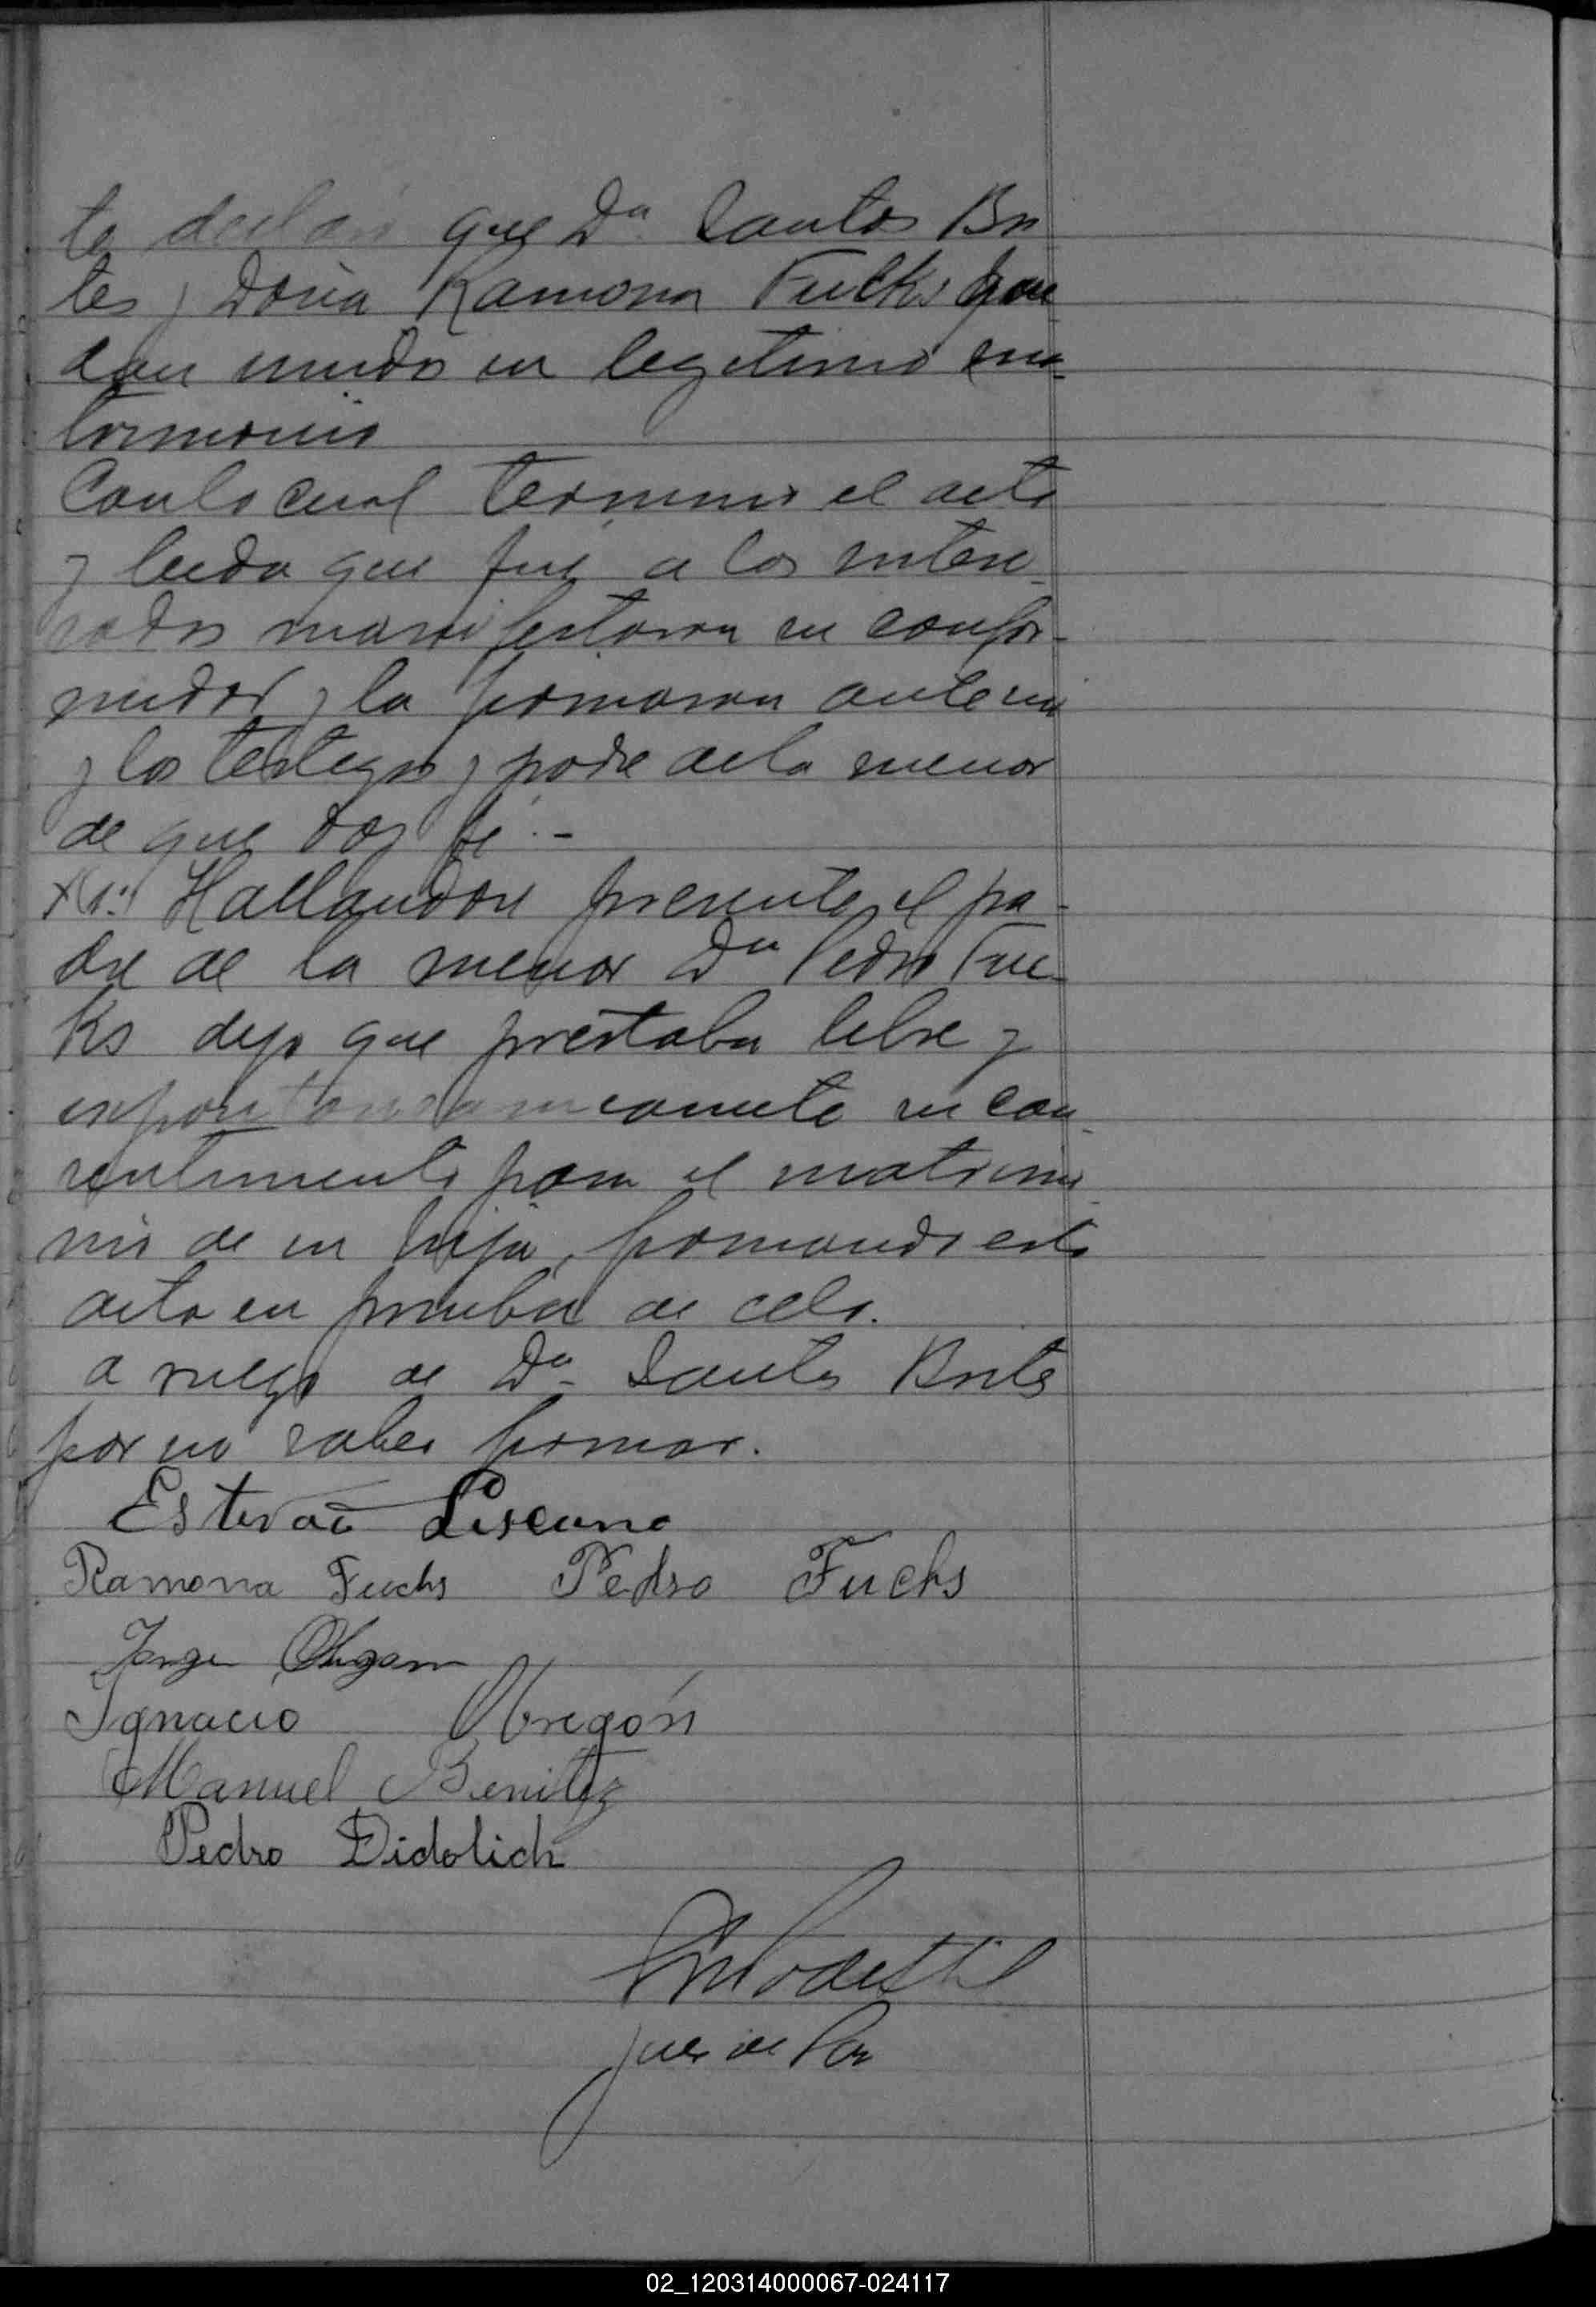 to declaro que Dn Santos Bri
tes y Doña Ramona Fucks que
dan unidos en legitimo ma-
trimonio
Con lo cual termino el acto
y leida que fue a los intere-
sados manifestaron su confor-
midad y la firmaron ante mi
y los testigos y padre de la menor
de que doy fé.-
Hallandose presente el pa-
dre de la menor Dn Pedro Fuc-
ks dijo que prestaba libre y
su con
sentimiento para el matrimo
nio de su hija, firmando esta
acta en prueba de ello.
a ruego de Dn Santos Brites
por no saber firmar.
Estevao Liscano
Ramona Fuchs Pedro Fuchs
Jorge
Ignacio Obregón
Manuel Benitez
Pedro Didolich
Juez de Paz
02_120314000067-024117